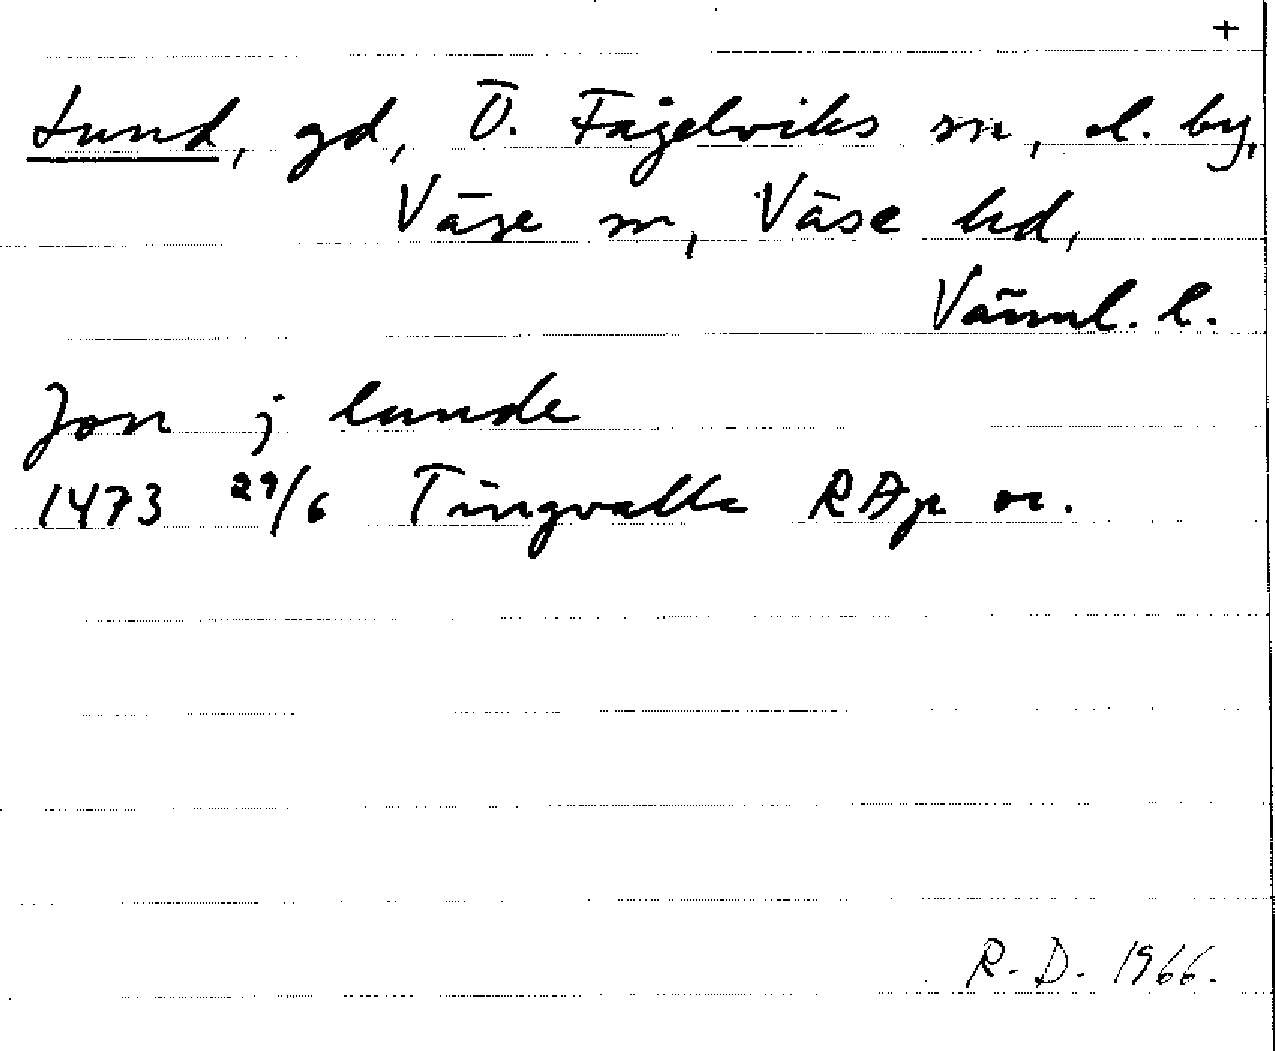 +
Lund, gd, Ö. Fågelviks sn, el. by,
Väse sn, Väse hd,
Värml. l.
Jon j lunde
1473 29/6 Tingvalla RAp or.
R. D. 1966.